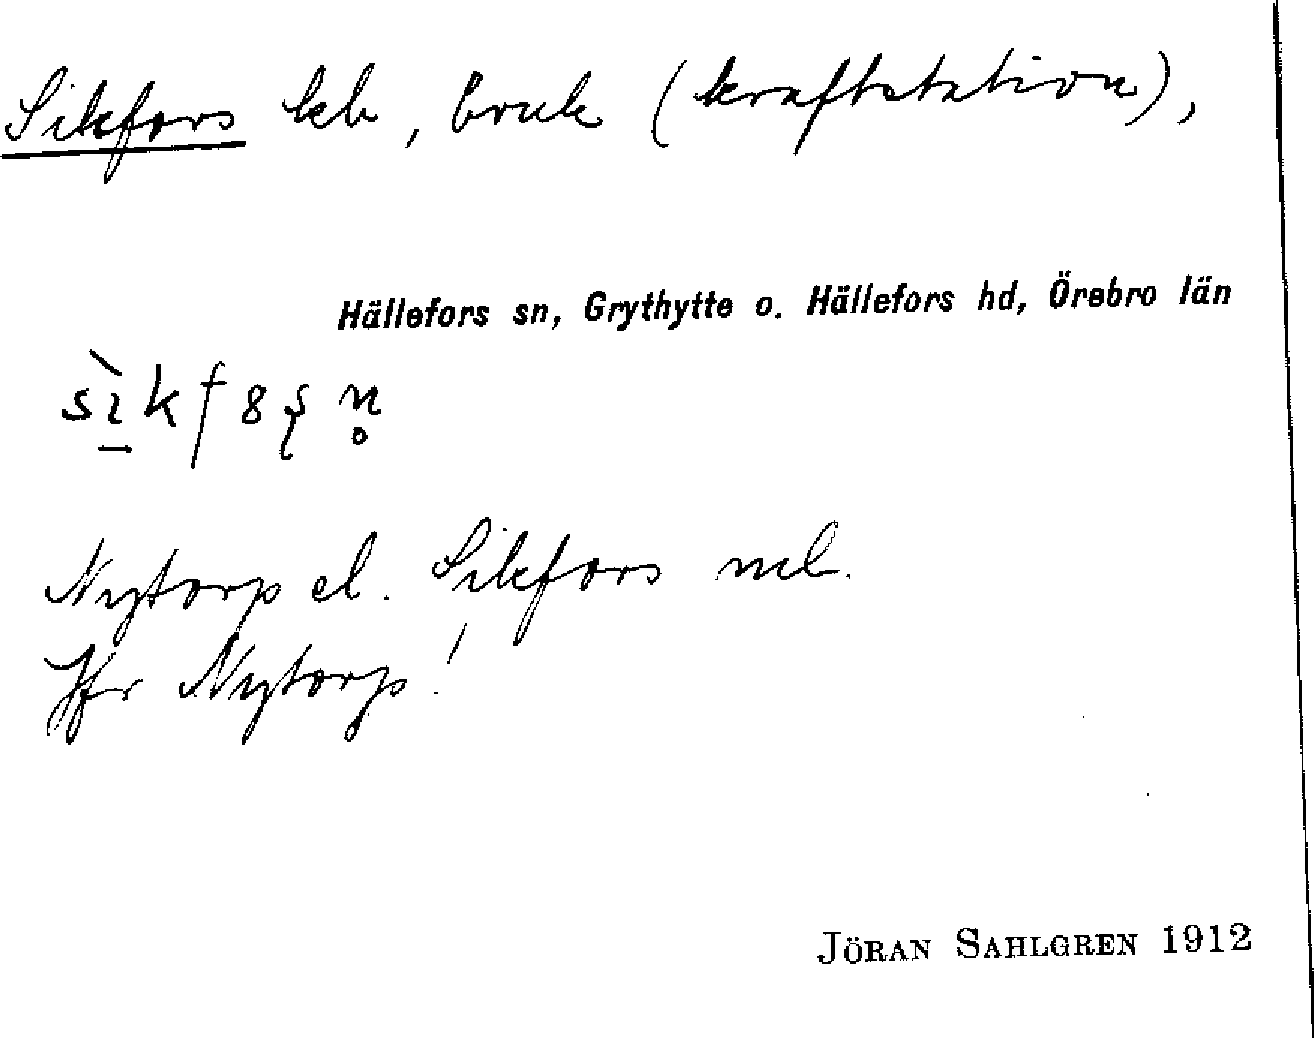 Sikfors kb, bruk (kraftstation),
Hällefors sn, Grythytte o. Hällefors hd, Örebro län
Nytorp el. Sikfors
Jfr Nytorp!
JÖRAN SAHLGREN 1912